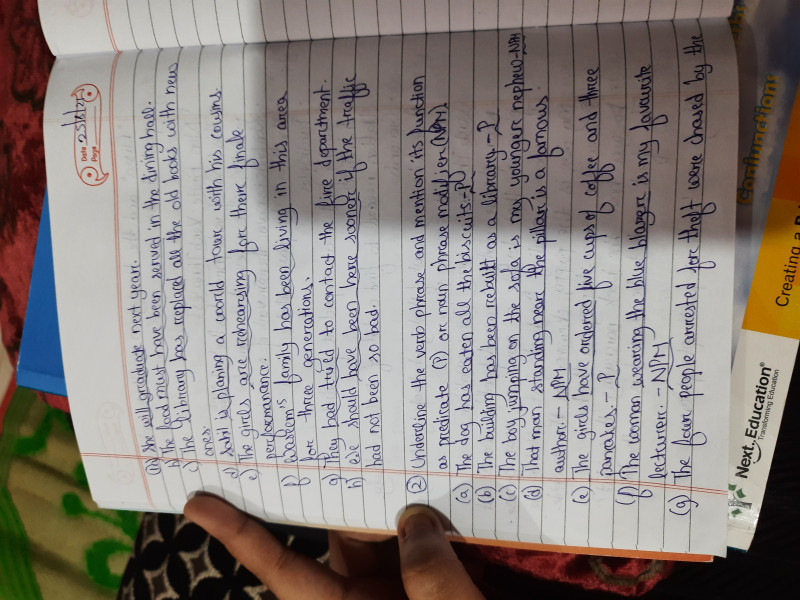 Date 25/6/25
Page
a) She will graduate next year.
b) The food must have been served in the dining hall.
c) The library has replaced all the old books with new
ones.
d) Sahil is planing a world tour with his cousins.
e) The girls are rehearsing for their finale
performance.
f) Waseem's family has been living in this area
for three generations.
g) They had tried to contact the fire department.
h) We should have been here sooner if the traffic
had not been so bad.
② Underline the verb phrase and mention its function
as predicate (P) or noun phrase modifier (NPM)
(a) The dog has eaten all the biscuits:- P
(b) The building has been rebuilt as a library.- P
(c) The boy jumping on the sofa is my younger nephew-NPM
(d) That man standing near the pillar is a famous
author:- NPM
(e) The girls have ordered five cups of coffee and three
pancakes.- P
(f) The woman wearing the blue blazer is my favourite
lecturer:- NPM
(g) The four people arrested for theft were chased by the
conjunctions
Creating a
Next Education®
Transforming Education